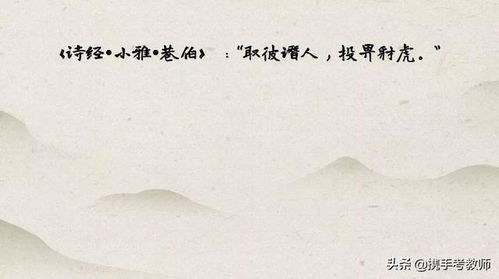 《诗经•小雅•巷伯》：“取彼谮人，投畀豺虎。”
头条 @携手考教师